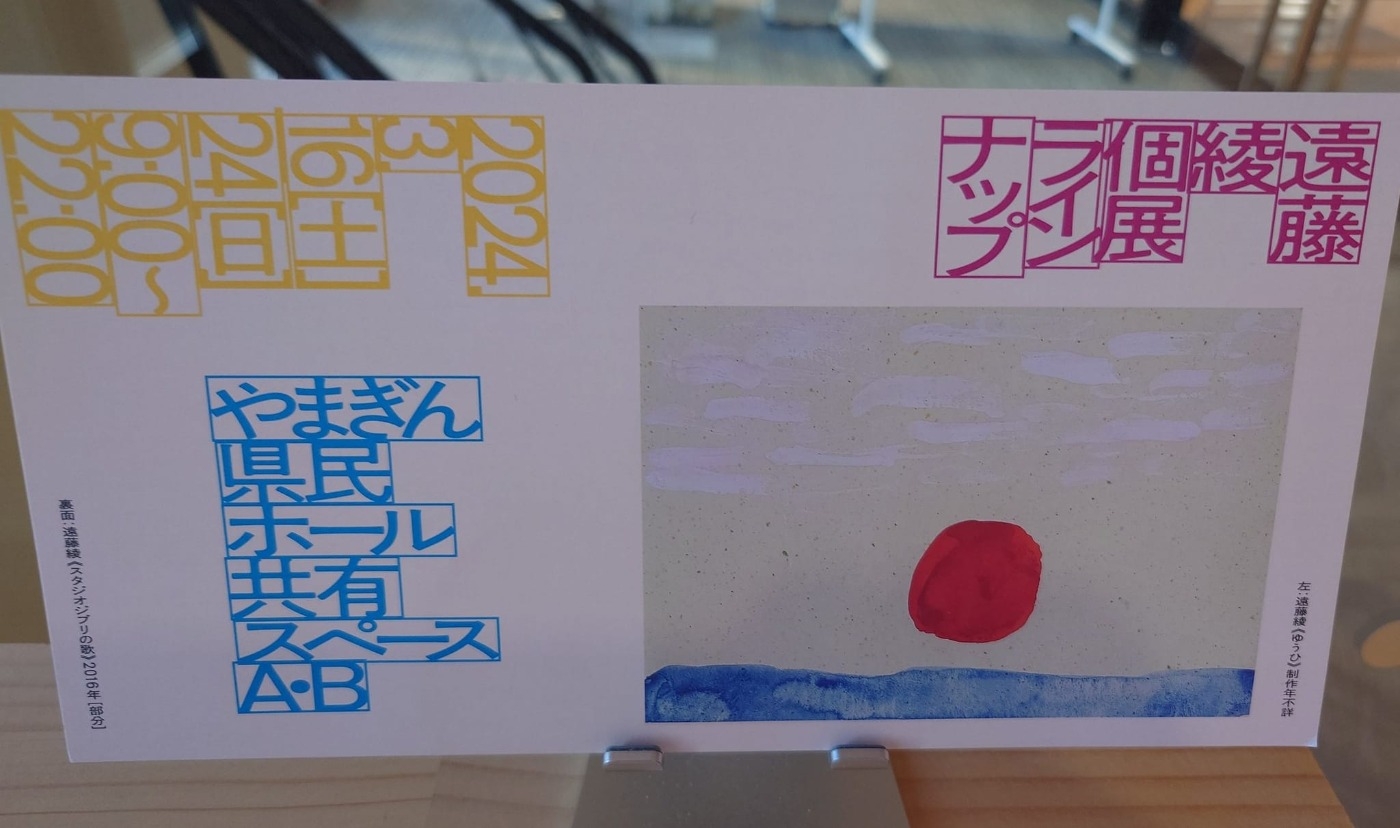 遠藤
綾
個展
ライン
ナップ
2024.
3.
16[土]
24[日]
9:00〜
22:00
やまぎん
県民
ホール
共有
スペース
A・B
左:遠藤綾《ゆうひ》制作年不詳
裏面:遠藤綾《スタジオジブリの歌》2016年[部分]